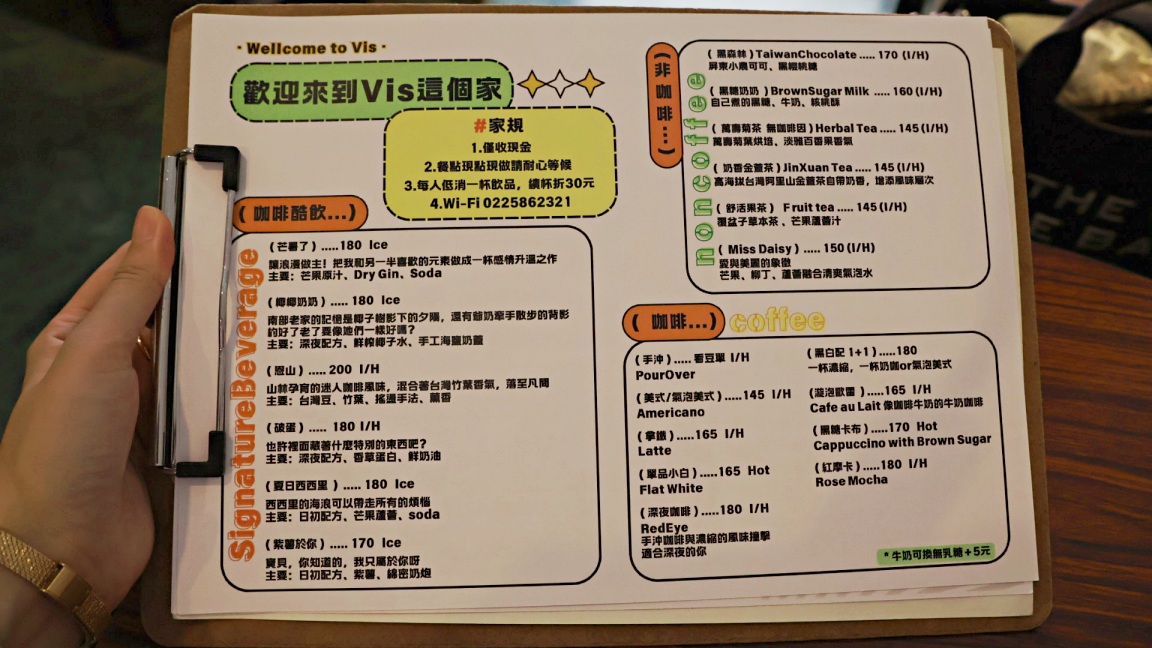 · Wellcome to Vis ·
歡迎來到Vis這個家
#家規
1.僅收現金
2.餐點現點現做請耐心等候
3.每人低消一杯飲品，續杯折30元
4.Wi-Fi 0225862321
(咖啡酷飲...)
SignatureBeverage
(芒暑了) .....180 Ice
讓浪漫做主！把我和另一半喜歡的元素做成一杯感情升溫之作
主要：芒果原汁、Dry Gin、Soda
(椰椰奶奶) ..... 180 Ice
南部老家的記憶是椰子樹影下的夕陽，還有爺奶牽手散步的背影
約好了老了要像她們一樣好嗎？
主要：深夜配方、鮮榨椰子水、手工海鹽奶蓋
(恩山) ..... 200 I/H
山林孕育的迷人咖啡風味，混合著台灣竹葉香氣，落至凡間
主要：台灣豆、竹葉、搖盪手法、薰香
(破蛋) ..... 180 I/H
也許裡面藏著什麼特別的東西吧？
主要：深夜配方、香草蛋白、鮮奶油
(夏日西西里) ..... 180 Ice
西西里的海浪可以帶走所有的煩惱
主要：日初配方、芒果蘆薈、soda
(紫薯於你) ..... 170 Ice
寶貝，你知道的，我只屬於你呀
主要：日初配方、紫薯、綿密奶炮
(非咖啡...)
(黑森林) TaiwanChocolate ..... 170 (I/H)
屏東小農可可、黑糖
(黑糖奶奶) BrownSugar Milk ..... 160 (I/H)
自己煮的黑糖、牛奶、核桃酥
(萬壽菊茶 無咖啡因) Herbal Tea ..... 145 (I/H)
萬壽菊葉烘培、淡雅百香果香氣
(奶香金萱茶) JinXuan Tea .... 145 (I/H)
高海拔台灣阿里山金萱茶自帶奶香，增添風味層次
(舒活果茶) Fruit tea ..... 145 (I/H)
覆盆子草本茶、芒果蘆薈汁
(Miss Daisy) ..... 150 (I/H)
愛與美麗的象徵
芒果、柳丁、蘆薈融合清爽氣泡水
(咖啡...) coffee
(手沖) ..... 看豆單 I/H
PourOver
(美式/氣泡美式) .....145 I/H
Americano
(拿鐵) .....165 I/H
Latte
(單品小白) .....165 Hot
Flat White
(深夜咖啡) .....180 I/H
RedEye
手沖咖啡與濃縮的風味撞擊
適合深夜的你
(黑白配 1+1) .....180
一杯濃縮，一杯奶咖or氣泡美式
(漩泡歐蕾) .....165 I/H
Cafe au Lait 像咖啡牛奶的牛奶咖啡
(黑糖卡布) .....170 Hot
Cappuccino with Brown Sugar
(紅摩卡) .....180 I/H
Rose Mocha
*牛奶可換無乳糖+5元
THE